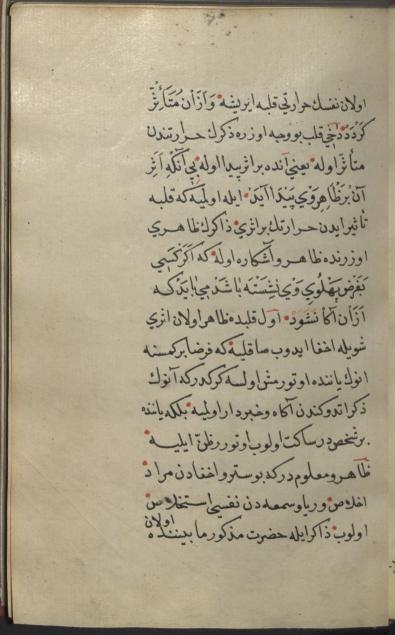 اولان نفسك حرارتی قلبه ایریشه وَازَان مُتَأَثّرْ
كَرْدَدْ دخی قلب بو وجه اوزره ذكرك حرارتندن
متأثر اوله یعنی آنده بر اثر پیدا اوله بی آنکه اَثَرِ
آن بَرْظاهِرِ وَی پَیدا آیَدْ ایله اولمیه که قلبه
تاثیر ایدن حرارتك بر اثری ذاكرك ظاهری
اوزرنده ظاهر و آشکاره اوله که اَكَرْ كَسی
بَفَرض پَهْلُویِ وَی نِشَسْتَه باشَدْ می بایَدْ كه
اَزْ آن آكاه نَشَوَدْ اول قلبده ظاهر اولان اثری
شویله اخفا ایدوب صاقلیه که فرضا بر كمسنه
انوك یاننده اوتورمش اولسه کرکدر که آنوك
ذکر ایتدوكندن آكاه و خبردار اولمیه بلکه یاننده
بر شخص در ساكت اولوب اوتورر ظن ایلیه
ظاهر و معلوم در که بو ستر و اخفادن مراد
اخلاص و ریا و سمعه دن نفسی استخلاص
اولوب ذاكر ایله حضرت مذكور مابیننده اولان